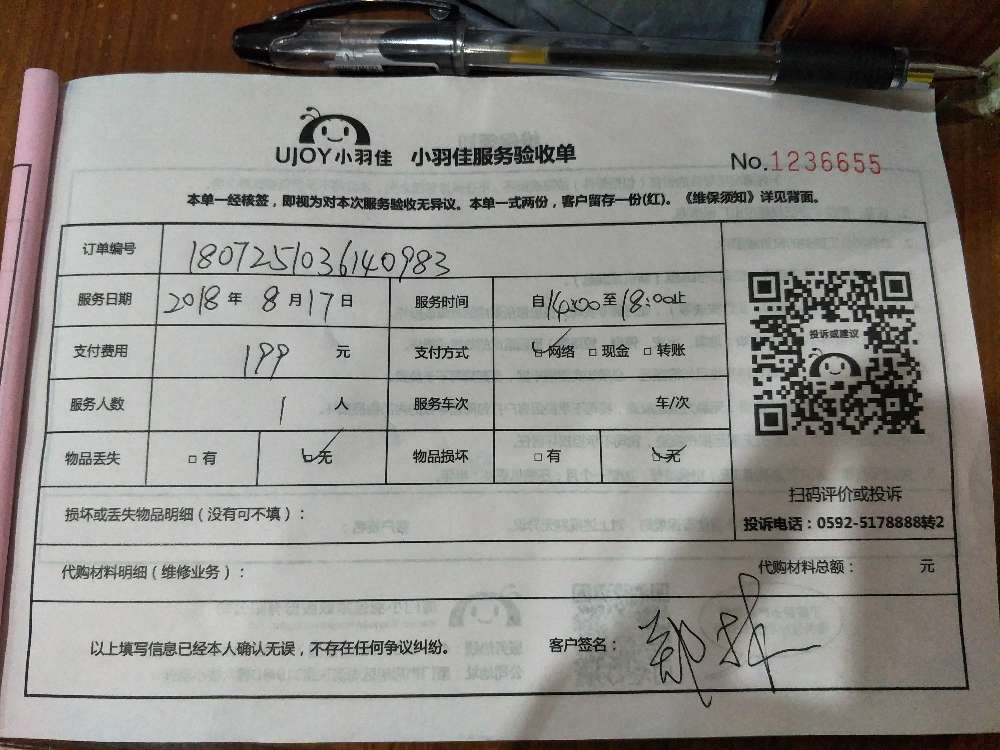 UJOY小羽佳 小羽佳服务验收单 No.1236655
本单一经核签，即视为对本次服务验收无异议。本单一式两份，客户留存一份(红)。《维保须知》详见背面。
订单编号 180725103614098​3
服务日期 2018年8月17日 服务时间 自14:00至18:00止
支付费用 199 元 支付方式 □网络 □现金 □转账
服务人数 1 人 服务车次 车/次
物品丢失 □有 □无 物品损坏 □有 □无
投诉或建议
扫码评价或投诉
投诉电话：0592-5178888转2
损坏或丢失物品明细（没有可不填）：
代购材料明细（维修业务）： 代购材料总额： 元
以上填写信息已经本人确认无误，不存在任何争议纠纷。 客户签名：